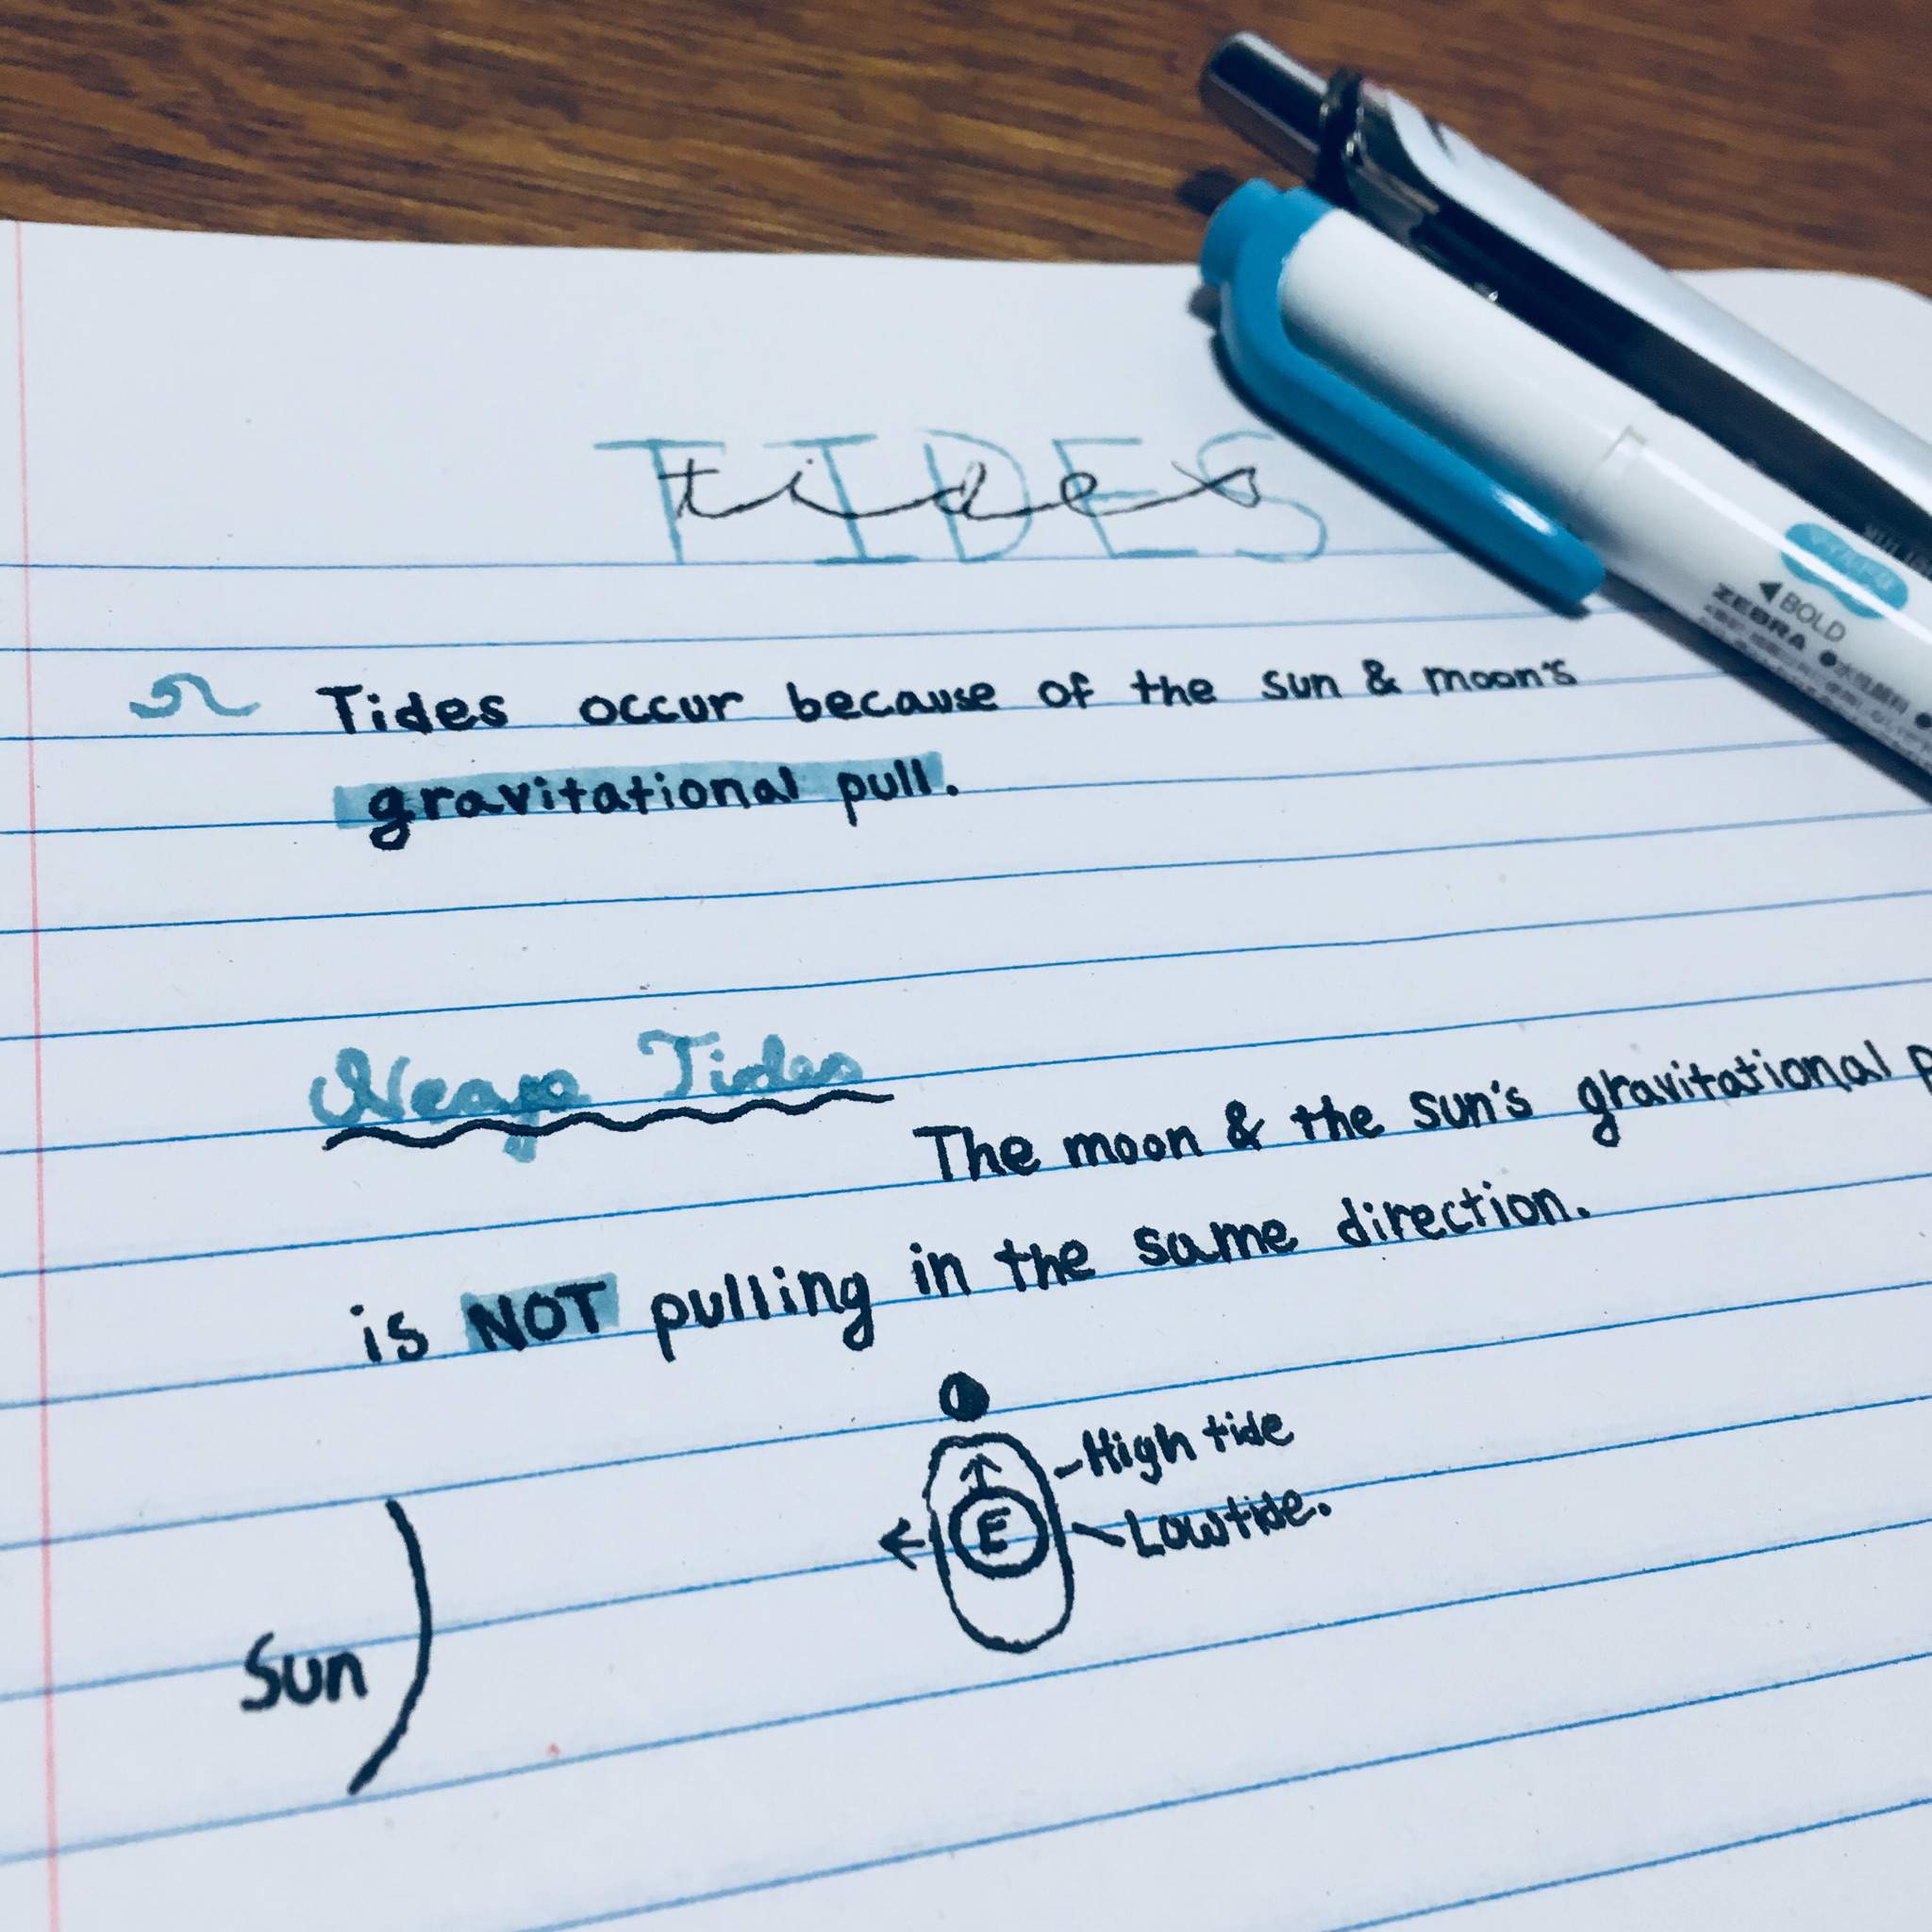 TIDES
tides
Tides occur because of the sun & moon's
gravitational pull.
Neap Tides
The moon & the sun's gravitational p
is NOT pulling in the same direction.
High tide
E
Low tide.
Sun
マイルド
◀BOLD
ZEBRA